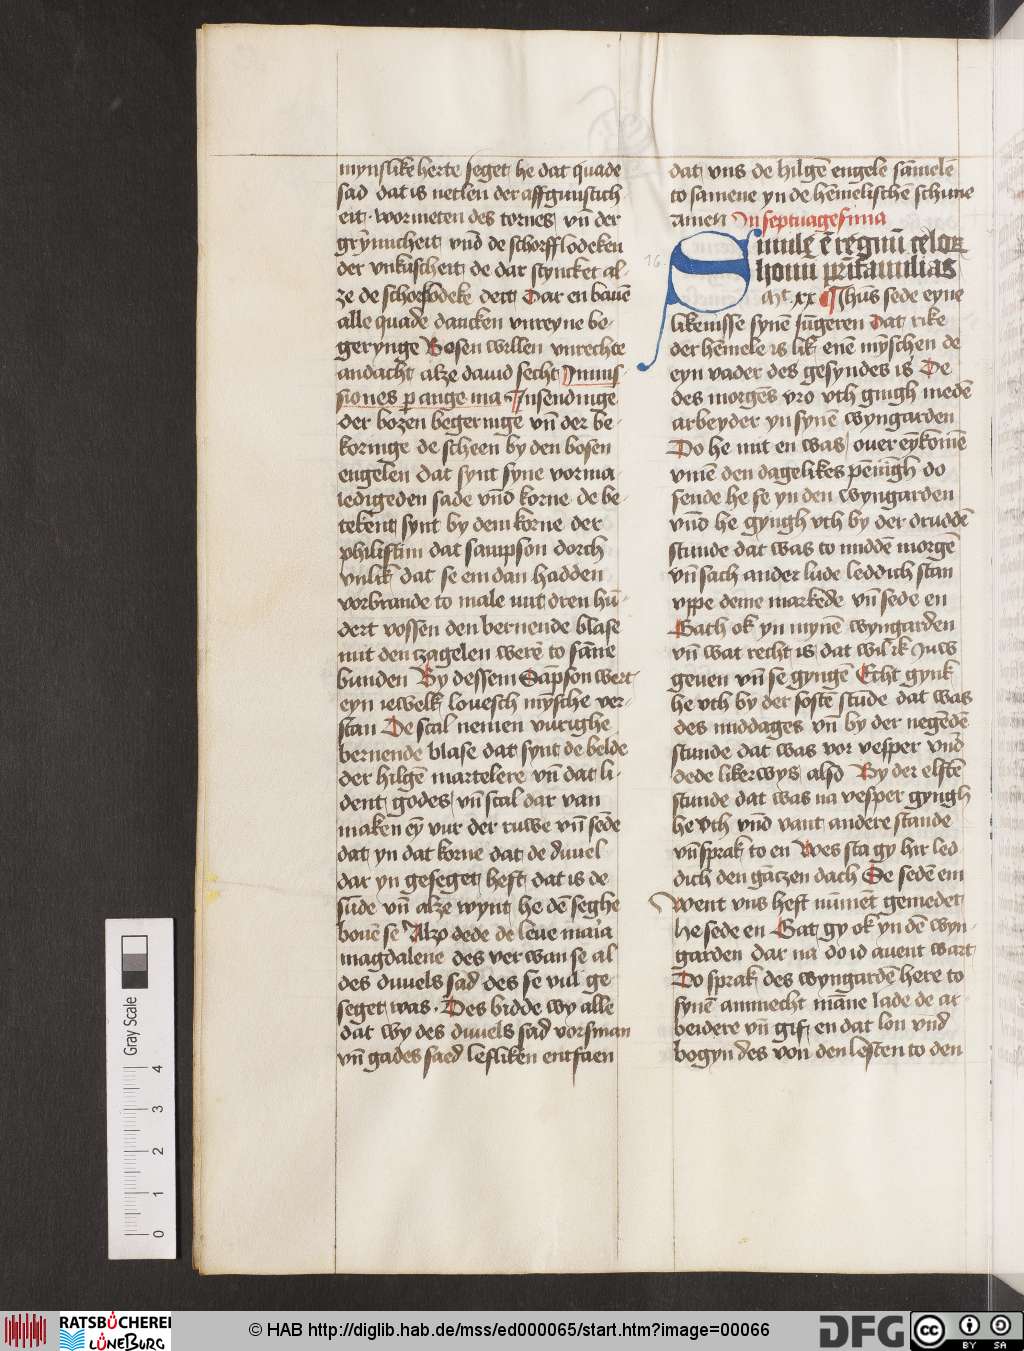 mynslike herte seget he dat quade
sad dat is netlen der affgunstich
eit wormeten des tornes vn̄ der
gryniicheit vnd de schorfflodeken
der vnkuscheit de dar styncket al-
ze de schorflodeke dert Dar en bauē
alle quade dancken vnreyne be-
gerynge Bosen willen vnrechte
andacht alze dauid secht Inmis
siones p ange ma Insendinge
der bozen begeringe vn̄ der be-
koringe de scheen by den bosen
engelen dat synt syne vorma
ledigeden sade vnd korne de be-
tekent synt by dem korne der
philistim dat sampson dorch
vnlik dat se em dan hadden
vorbrande to male mit dren hū-
dert vossen den bernende blase
mit den tzagelen werē to sāme
bunden By dessem Sāpson wert
eyn iewelk louesch mȳsche ver-
stan De scal nemen vurighe
bernende blase dat synt de belde
der hilgē martelere vn̄ dat li-
dent godes vn̄ scal dar van
maken eȳ vur der ruwe vn̄ sēde
dat yn dat korne dat de duuel
dar yn geseget heft dat is de
sūde vn̄ alze wynt he dē seghe
bouē se Alzo dede de leue maria
magdalene des ver wan se al
des duuels sad des se vul ge
seget was Des bidde wy alle
dat wy des duuels sad vorsman
vn̄ gades saed lefliken entfaen
dat vns de hilgē engele sāmelē
to samene yn de hēmelischē schune
amen In septuagesima
16
Simile ē regnū celoꝝ
homi prīfamilias
mt xx Jhūs sede eyne
likenisse synē Jūgeren Dat rike
der hēmele is lik enē mȳschen de
eyn vader des gesyndes is De
des morgēs vro vth gingh medē
arbeyder yn synē wyngarden
Do he mit en was ouer eȳkomē
vmē den dagelikes pēningh do
sende he se yn den wyngarden
vnd he gyngh vth by der druddē
stunde dat was to middē morgē
vn̄ sach ander lude leddich stan
vppe deme markede vn̄ sede en
Gath ok yn mynē wyngarden
vn̄ wat recht is dat wil ik Juw
geuen vn̄ se gyngē Echt gynk
he vth by der sostē stūde dat was
des middages vn̄ by der negēdē
stunde dat was vor vesper vnd
dede likerwys alsō By der elftē
stunde dat was na vesper gyngh
he vth vnd vant andere stande
vn̄ sprak to en Wes sta gy hir led
dich den gātzen dach Se sedē em
Went vns heft nūmēt gemedet
He sede en Gat gy ok yn dē wyn-
garden dar na do id auent wart
Do sprak des wyngardē here to
synē ammecht māne lade de ar-
beidere vn̄ gif en dat lon vnd
bogyn des von den lesten to den
Gray Scale
4
3
2
1
0
RATSBÜCHEREI
LÜNEBURG
© HAB http://diglib.hab.de/mss/ed000065/start.htm?image=00066
DFG
cc
BY SA